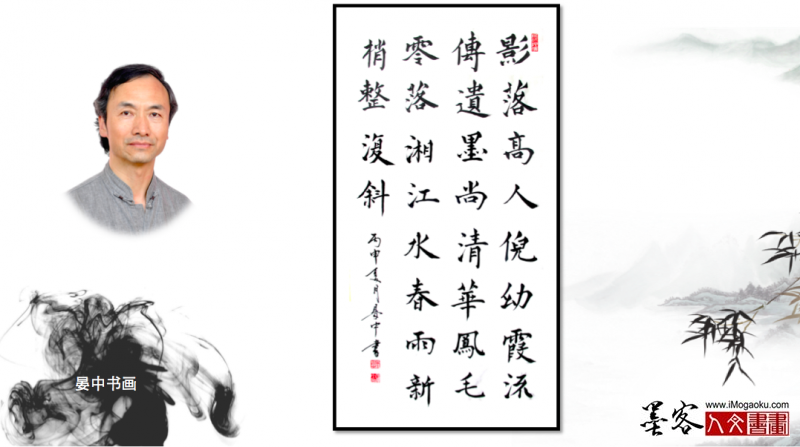 影落高人倪幼霞流
傳遺墨尚清華鳳毛
零落湘江水春雨新
梢整復斜
丙申夏月晏中書
晏中书画
墨客
www.iMogaoku.com
人文書畫